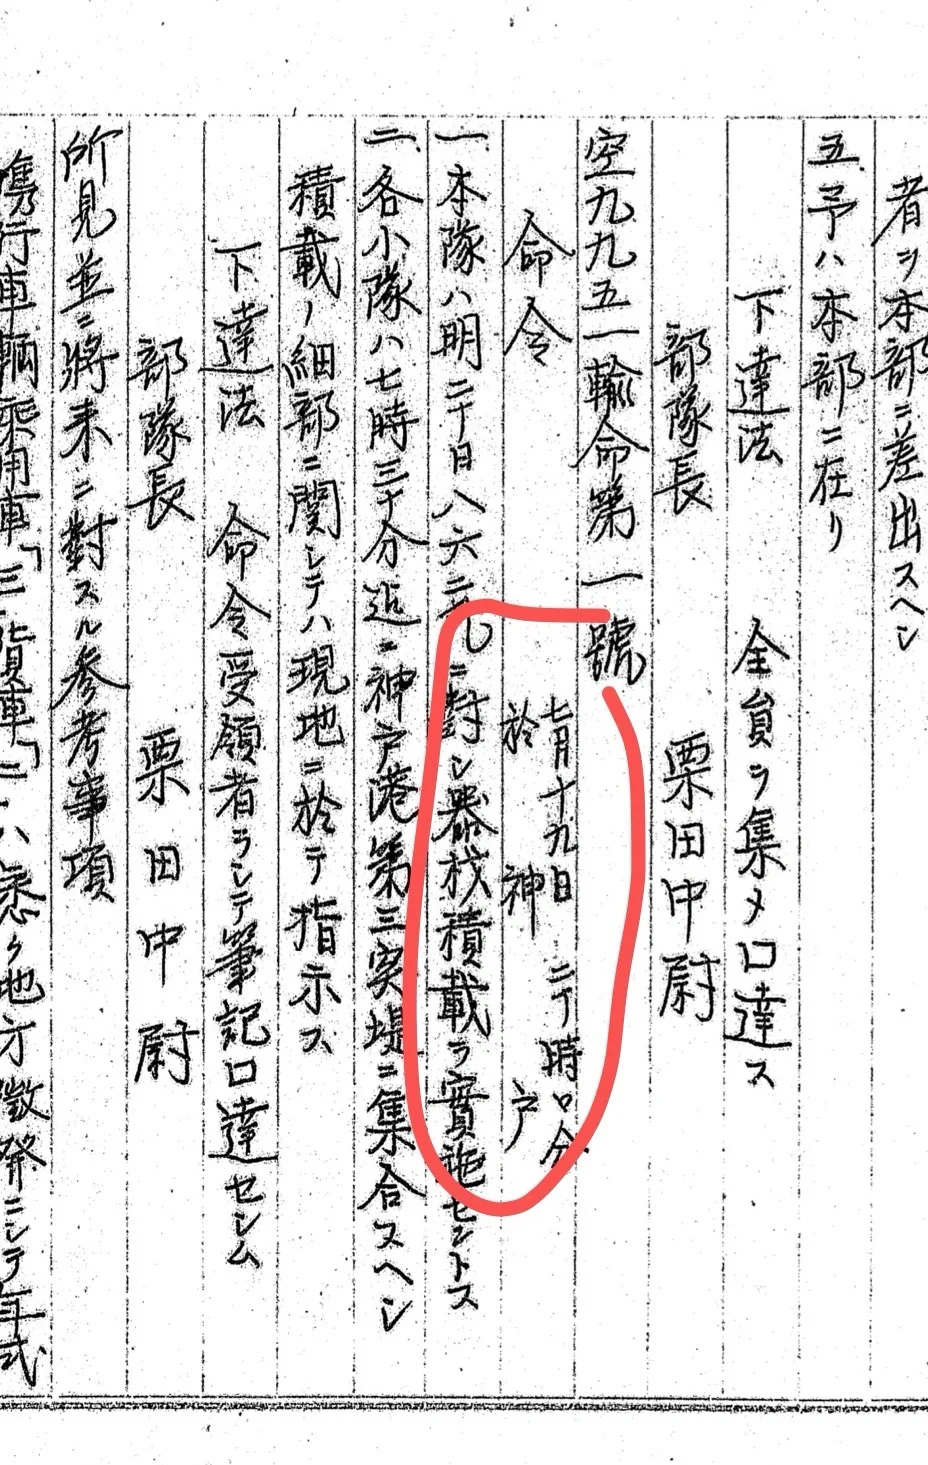 者ヲ本部ニ差出スヘシ
五、予ハ本部ニ在リ
下達法 全員ヲ集メ口達ス
部隊長 栗田中尉
空九九五一輸命第一號
命令
七月十九日 二十時〇分
於 神 戸
一、本隊ハ明二十日八六二乳ニ對シ器材積載ヲ實施セントス
二、各小隊ハ七時三十分迄ニ神戸港第三突堤ニ集合スヘシ
積載ノ細部ニ関シテハ現地ニ於テ指示ス
下達法 命令受領者ヲシテ筆記口達セシム
部隊長 栗田中尉
所見並ニ將来ニ對スル参考事項
携行車輌乘用車「三」貨車「二」ハ悉ク地方徴発ニシテ年式